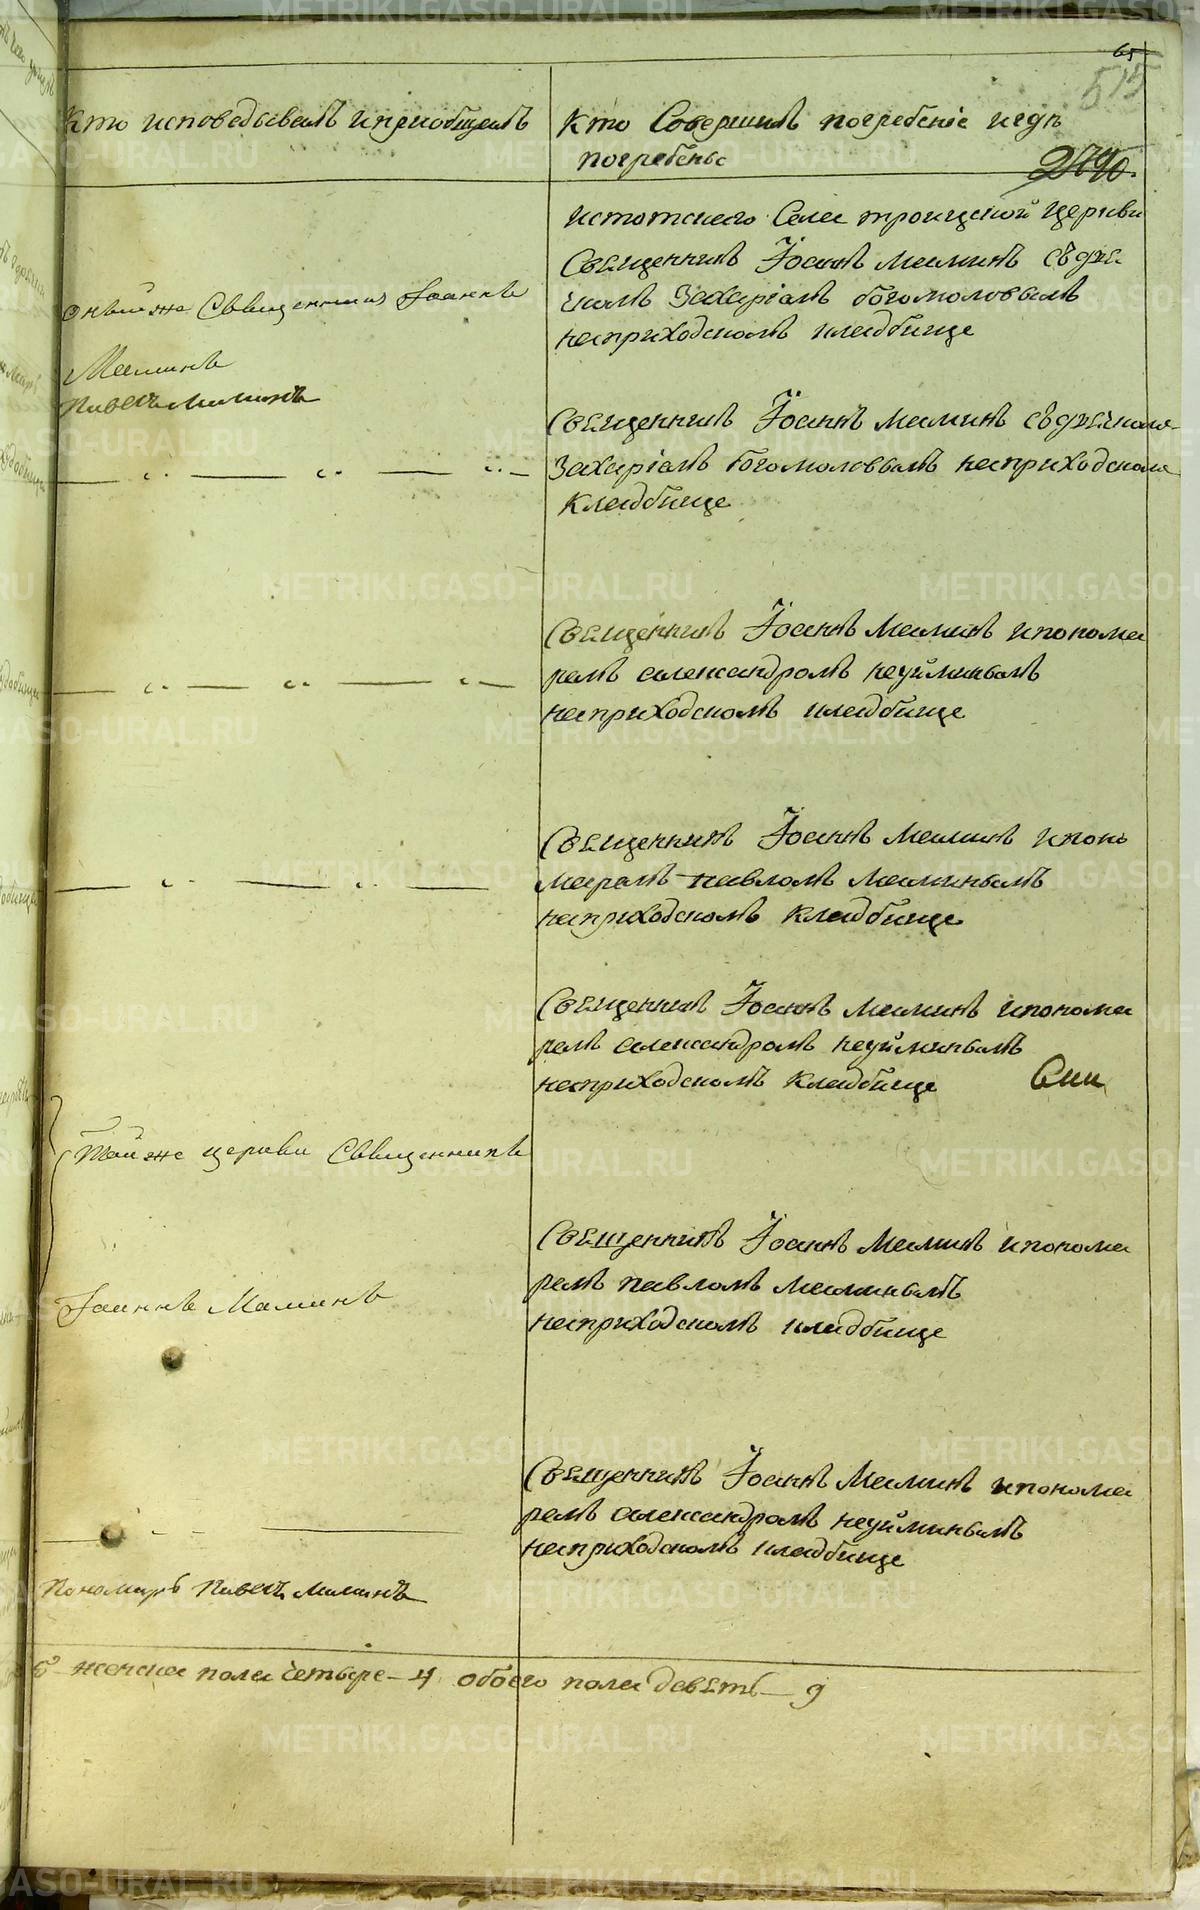 65
515
Кто исповедывалъ и приобщалъ
Кто Совершилъ погребеніе и гдѣ
погребены
истотского Села троицкой Церкви
Священникъ Іоаннъ Маминъ съ дья
комъ Захаріемъ богомоловымъ
наприходскомъ кладбище
оный же Священникъ Іоаннъ
Маминъ
Павелъ Маминъ
Священникъ Іоаннъ Маминъ съ дьячкомъ
Захаріемъ богомоловымъ наприходскомъ
Кладбище
Священникъ Іоаннъ Маминъ и понома
ремъ александромъ неуйминымъ
наприходскомъ кладбище
Священникъ Іоаннъ Маминъ и поно
маремъ павломъ Маминымъ
наприходскомъ Кладбище
Священникъ Іоаннъ Маминъ и понома
ремъ александромъ неуйминымъ
наприходскомъ Кладбище
Той же церкви Священникъ
Іоаннъ Маминъ
Священникъ Іоаннъ Маминъ и понома
ремъ павломъ Маминымъ
наприходскомъ кладбище
Священникъ Іоаннъ Маминъ и понома
ремъ александромъ неуйминымъ
наприходскомъ кладбище
Пономарь Павелъ Маминъ
5 женска пола четыре - 4 обоего пола девять - 9
METRIKI.GASO-URAL.RU